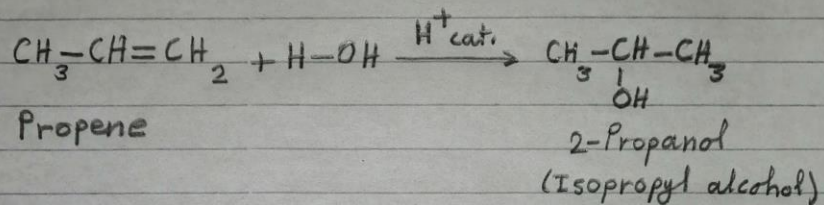 CH₃–CH=CH₂ + H–OH H⁺ cat. → CH₃–CH–CH₃
OH
Propene
2-Propanol
(Isopropyl alcohol)